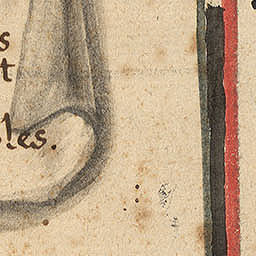 s
t
les.